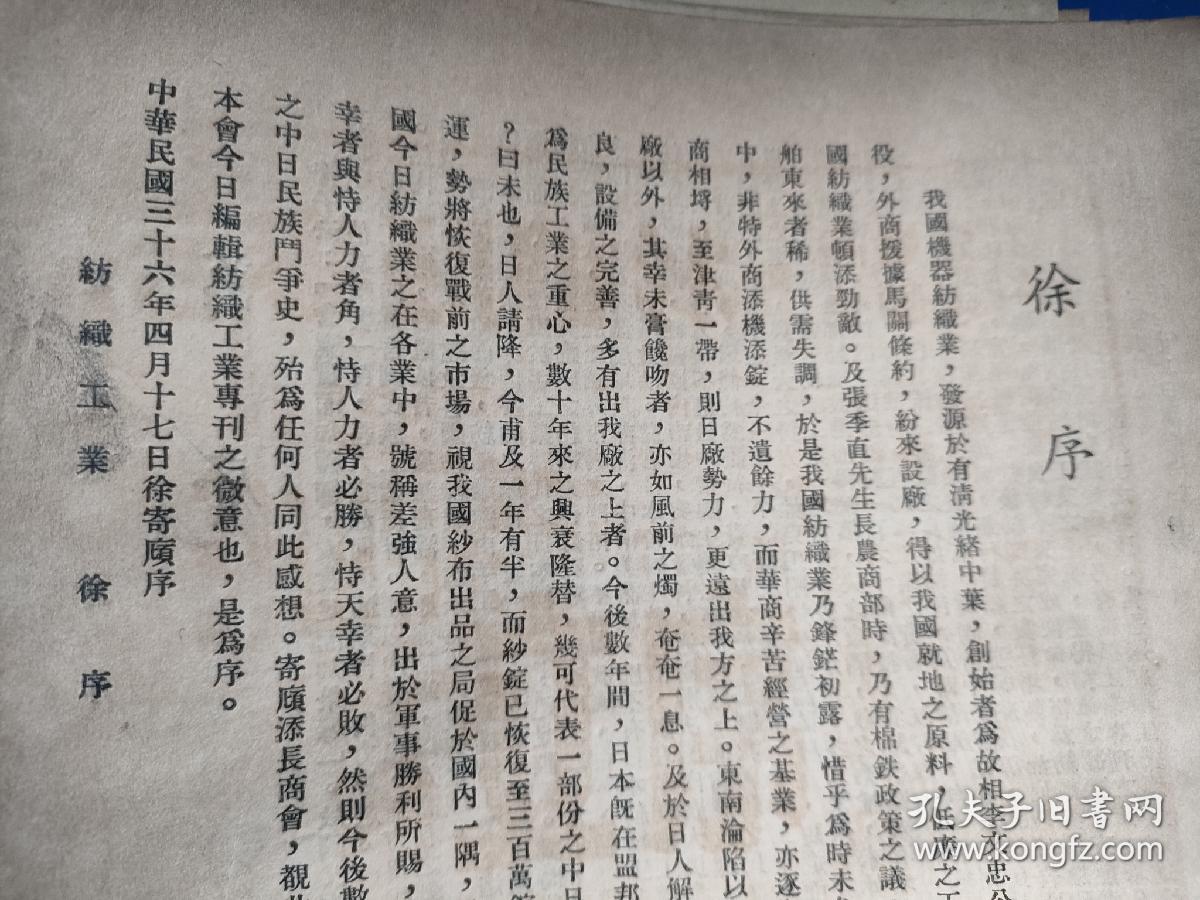 徐序
我國機器紡織業，發源於有清光緒中葉，創始者爲故相李文忠公
役，外商援據馬關條約，紛來設廠，得以我國就地之原料，低廉之工
國紡織業頓添勁敵。及張季直先生長農商部時，乃有棉鉄政策之議
舶東來者稀，供需失調，於是我國紡織業乃鋒鋩初露，惜乎爲時未
中，非特外商添機添錠，不遺餘力，而華商辛苦經營之基業，亦逐
商相埒，至津靑一帶，則日廠勢力，更遠出我方之上。東南淪陷以
廠以外，其幸未膏饞吻者，亦如風前之燭，奄奄一息。及於日人解
良，設備之完善，多有出我廠之上者。今後數年間，日本旣在盟邦
爲民族工業之重心，數十年來之興衰隆替，幾可代表一部份之中日
？曰未也，日人請降，今甫及一年有半，而紗錠已恢復至三百萬
運，勢將恢復戰前之市場，視我國紗布出品之局促於國內一隅，
國今日紡織業之在各業中，號稱差強人意，出於軍事勝利所賜，
幸者與恃人力者角，恃人力者必勝，恃天幸者必敗，然則今後數
之中日民族鬥爭史，殆爲任何人同此感想。寄廎添長商會，覩
本會今日編輯紡織工業專刊之微意也，是爲序。
中華民國三十六年四月十七日徐寄廎序
紡織工業 徐序
孔夫子旧書网
www.kongfz.com